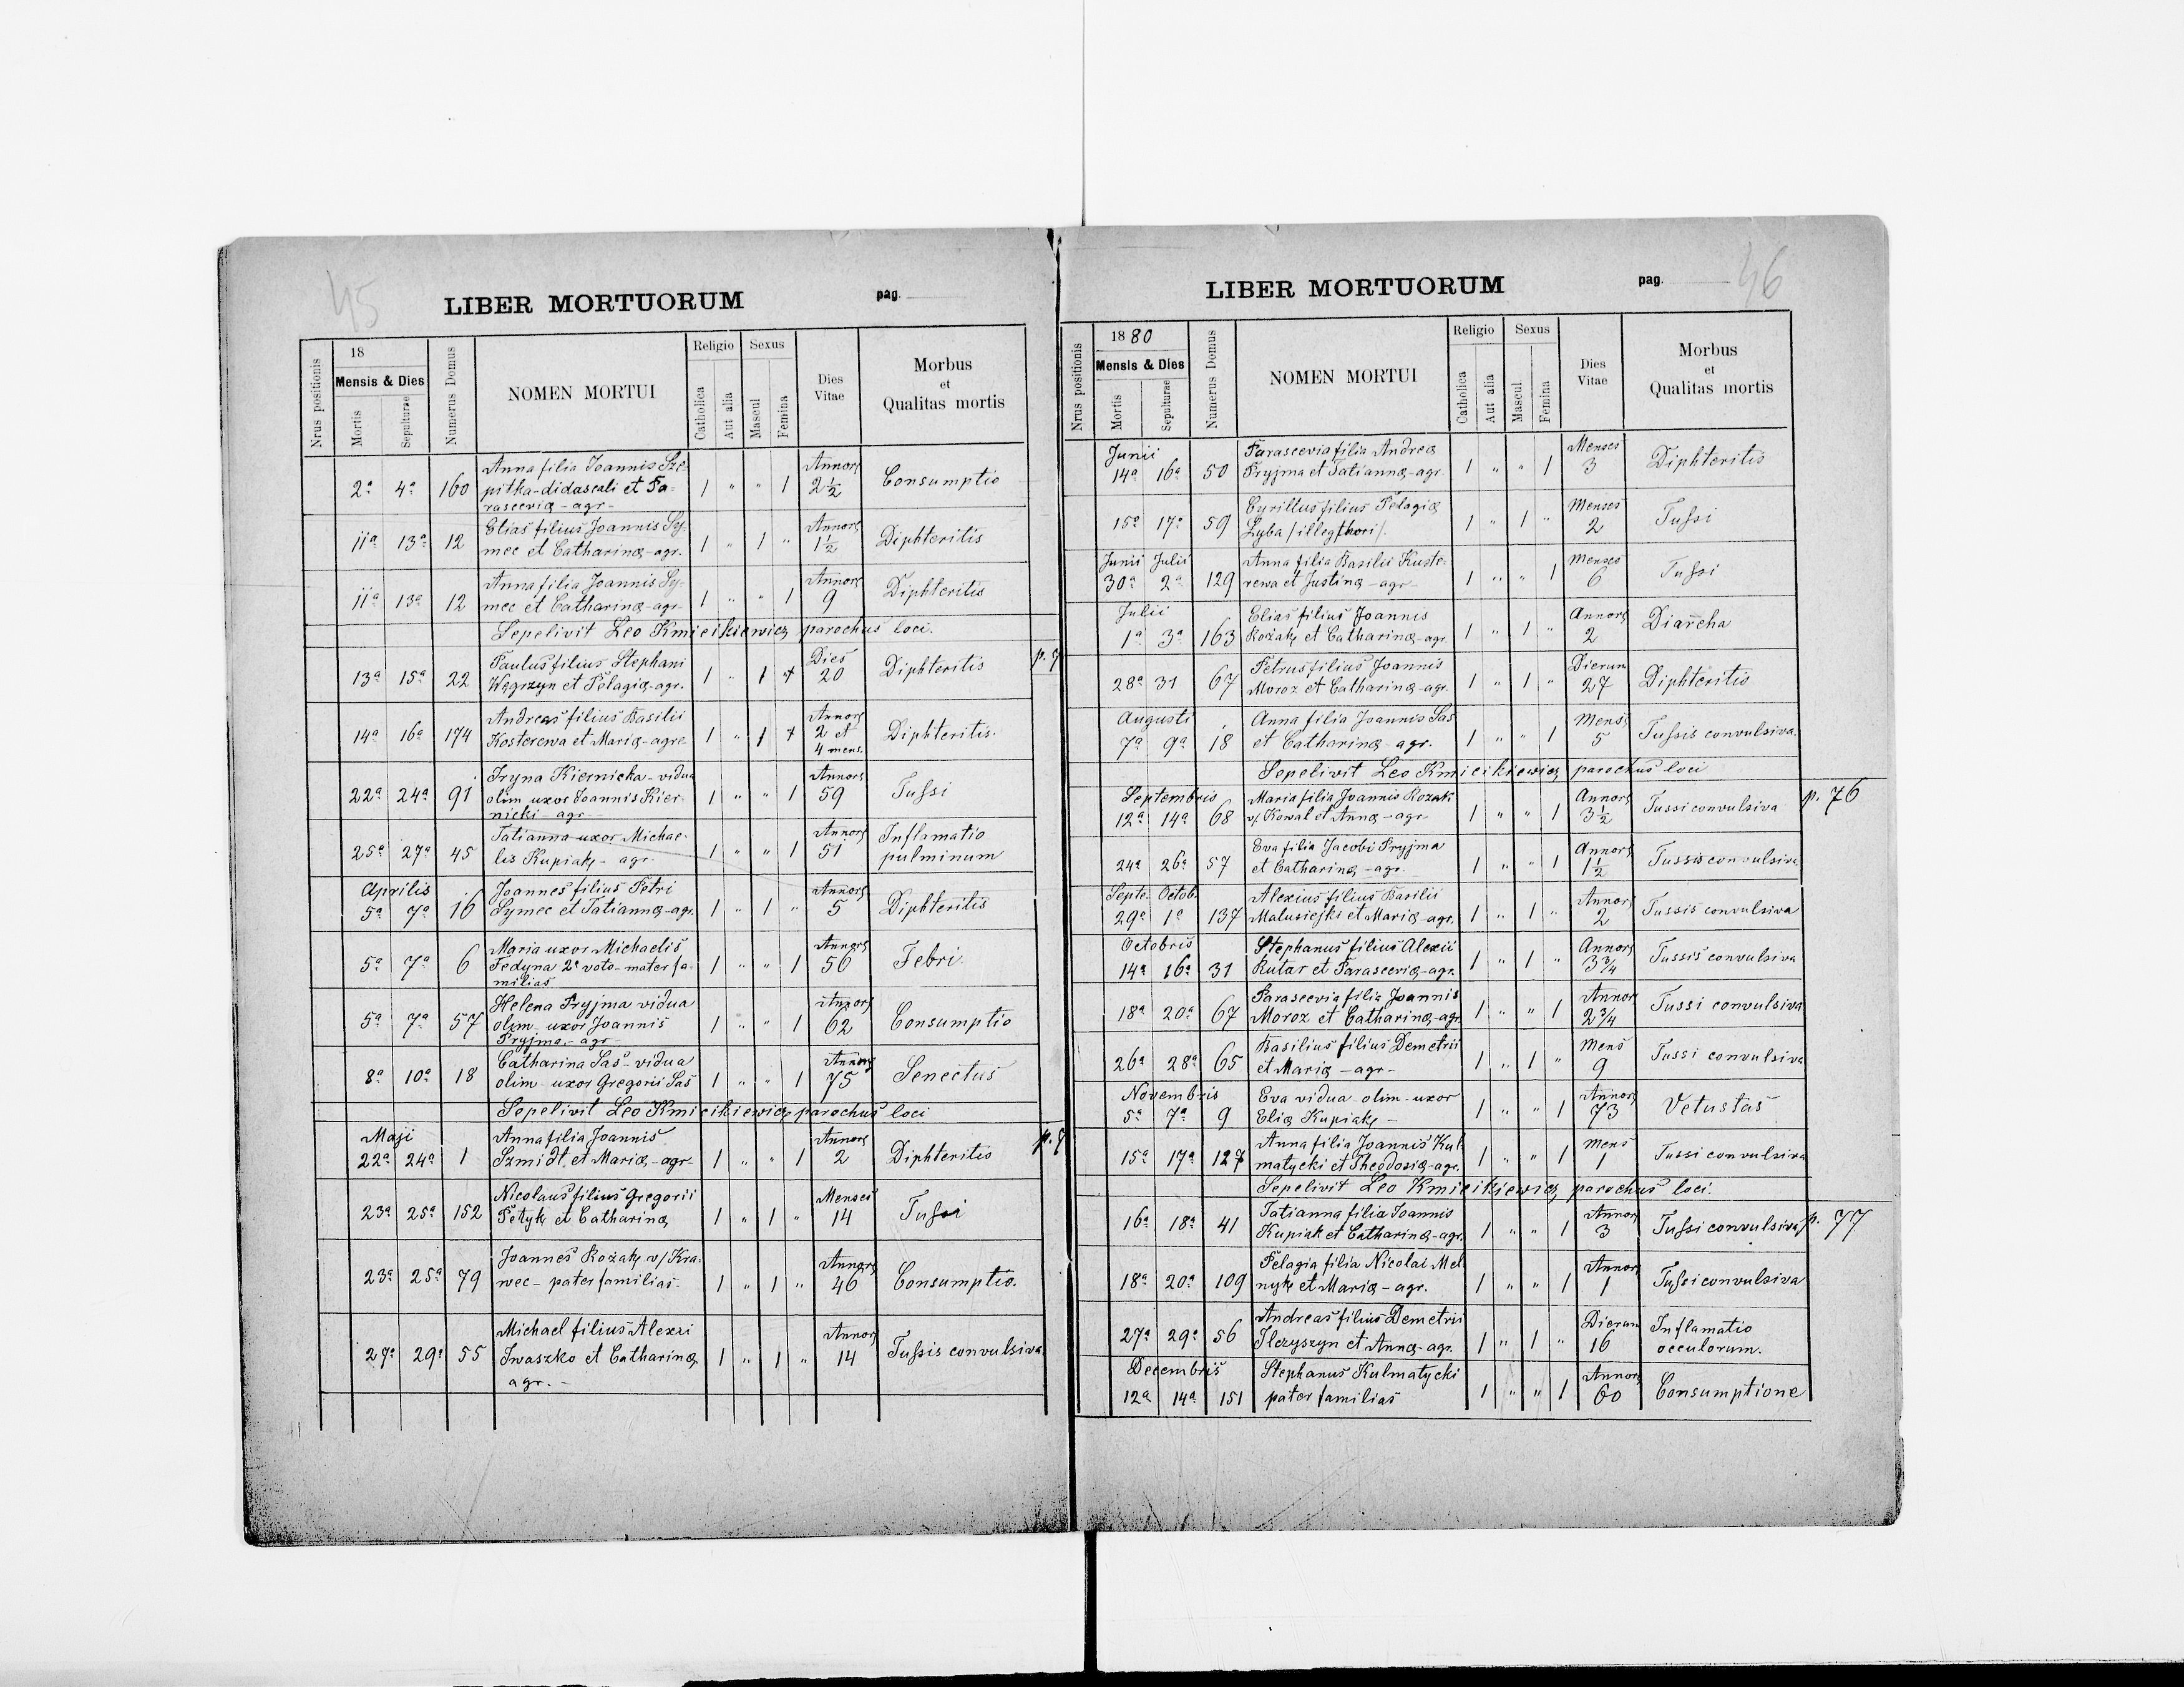 45
LIBER MORTUORUM
pag.
Nrus positionis
18
Mensis & Dies
Mortis
Sepulturae
Numerus Domus
NOMEN MORTUI
Religio
Catholica
Aut alia
Sexus
Mascul
Femina
Dies
Vitae
Morbus
et
Qualitas mortis
Anna filia Joannis Sze-
2ª 4ª 160 pitka-didascali et Pa- 1 " " 1 Annor 2½ Consumptio
rasceviæ - agr-
Elias filius Joannis Sy-
11ª 13ª 12 mec et Catharinæ-agr. 1 " 1 " Annor 1½ Diphteritis
Anna filia Joannis Sy-
11ª 13ª 12 mec et Catharinæ-agr- 1 " " 1 Annor 9 Diphteritis
Sepelivit Leo Kmicikiewicz parochus loci.
Paulus filius Stephani
13ª 15ª 22 Węgrzyn et Pelagiæ-agr. 1 " 1 Dies 20 Diphteritis
p. 7
Andreas filius Basilii
14ª 16ª 174 Kosterewa et Mariæ-agr. 1 " 1 Annor 2 et 4 mens. Diphteritis.
Iryna Kiernicka-vidua
22ª 24ª 91 olim uxor Joannis Kier- 1 " " 1 Annor 59 Tussi
nicki-agr-
Tatianna uxor Michae-
25ª 27ª 45 lis Kupiak - agr- 1 " " 1 Annor 51 Inflamatio pulminum
Aprilis Joannes filius Petri
5ª 7ª 16 Symec et Tatiannæ-agr. 1 " 1 " Annor 5 Diphteritis
Maria uxor Michaelis
5ª 7ª 6 Fedyna 2º voto-mater fa- 1 " " 1 Annor 56 Febri.
milias
Helena Pryjma vidua
5ª 7ª 57 olim uxor Joannis 1 " " 1 Annor 62 Consumptio
Pryjma-agr-
Catharina Sas-vidua
8ª 10ª 18 olim uxor Gregorii Sas 1 " " 1 Annor 75 Senectus
Sepelivit Leo Kmicikiewicz parochus loci
Maji Anna filia Joannis
22ª 24ª 1 Szmidt et Mariæ-agr- 1 " " 1 Annor 2 Diphteritis
Nicolaus filius Gregorii
23ª 25ª 152 Petyk et Catharinæ 1 " 1 " Menses 14 Tussi
Joannes Kozak v/ Kra-
23ª 25ª 79 wec - pater familias. 1 " 1 " Annor 46 Consumptio.
Michael filius Alexii
27ª 29ª 55 Iwaszko et Catharinæ 1 " 1 " Annor 14 Tussis convulsiva
agr. -
46
LIBER MORTUORUM
pag.
Nrus positionis
1880
Mensis & Dies
Mortis
Sepulturae
Numerus Domus
NOMEN MORTUI
Religio
Catholica
Aut alia
Sexus
Mascul
Femina
Dies
Vitae
Morbus
et
Qualitas mortis
Junii Parascevia filia Andreæ
14ª 16ª 50 Pryjma et Tatiannæ-agr. 1 " " 1 Menses 3 Diphteritis
Cyrillus filius Pelagiæ
15ª 17ª 59 Zyba /illeg thori/. 1 " 1 " Menses 2 Tussi
Junii Julii Anna filia Basilii Koste-
30ª 2ª 129 rewa et Justinæ-agr- 1 " " 1 Menses 6 Tussi
Julii Elias filius Joannis
1ª 3ª 163 Kozak et Catharinæ-agr. 1 " 1 " Annor 2 Diarcha
Petrus filius Joannis
28ª 31 67 Moroz et Catharinæ-agr. 1 " 1 " Dierum 27 Diphteritis
Augusti Anna filia Joannis Sas
7ª 9ª 18 et Catharinæ-agr. 1 " " 1 Mens. 5 Tussis convulsiva.
Sepelivit Leo Kmicikiewicz parochus loci
Septembris Maria filia Joannis Kozak
12ª 14ª 68 v/ Kowal et Annæ-agr- 1 " " 1 Annor 3½ Tussi convulsiva
p. 76
Eva filia Jacobi Pryjma
24ª 26ª 57 et Catharinæ-agr. 1 " " 1 Annor 1½ Tussis convulsiva
Septe. Octob. Alexius filius Basilii
29ª 1ª 137 Malusiejki et Mariæ-agr. 1 " 1 " Annor 2 Tussis convulsiva
Octobris Stephanus filius Alexii
14ª 16ª 31 Kutar et Parasceviæ-agr. 1 " 1 " Annor 3¾ Tussis convulsiva
Parascevia filia Joannis
18ª 20ª 67 Moroz et Catharinæ-agr. 1 " " 1 Annor 2¾ Tussi convulsiva
Basilius filius Demetrii
26ª 28ª 65 et Mariæ-agr- 1 " 1 " Mens 9 Tussi convulsiva
Novembris Eva vidua olim-uxor
5ª 7ª 9 Eliæ Kupiak- 1 " " 1 Annor 73 Vetustas
Anna filia Joannis Kul-
15ª 17ª 127 matycki et Theodosiæ-agr. 1 " " 1 Mens 1 Tussi convulsiva
Sepelivit Leo Kmicikiewicz parochus loci.
Tatianna filia Joannis
16ª 18ª 41 Kupiak et Catharinæ-agr. 1 " " 1 Annor 3 Tussi convulsiva
p. 77
Pelagia filia Nicolai Mel-
18ª 20ª 109 nyk et Mariæ-agr. 1 " " 1 Annor 1 Tussi convulsiva
Andreas filius Demetrii
27ª 29ª 56 Ilczyszyn et Annæ-agr. 1 " 1 " Dierum 16 Inflamatio occulorum.
Decembris Stephanus Kulmatycki
12ª 14ª 151 pater familias 1 " " 1 Annor 60 Consumptione